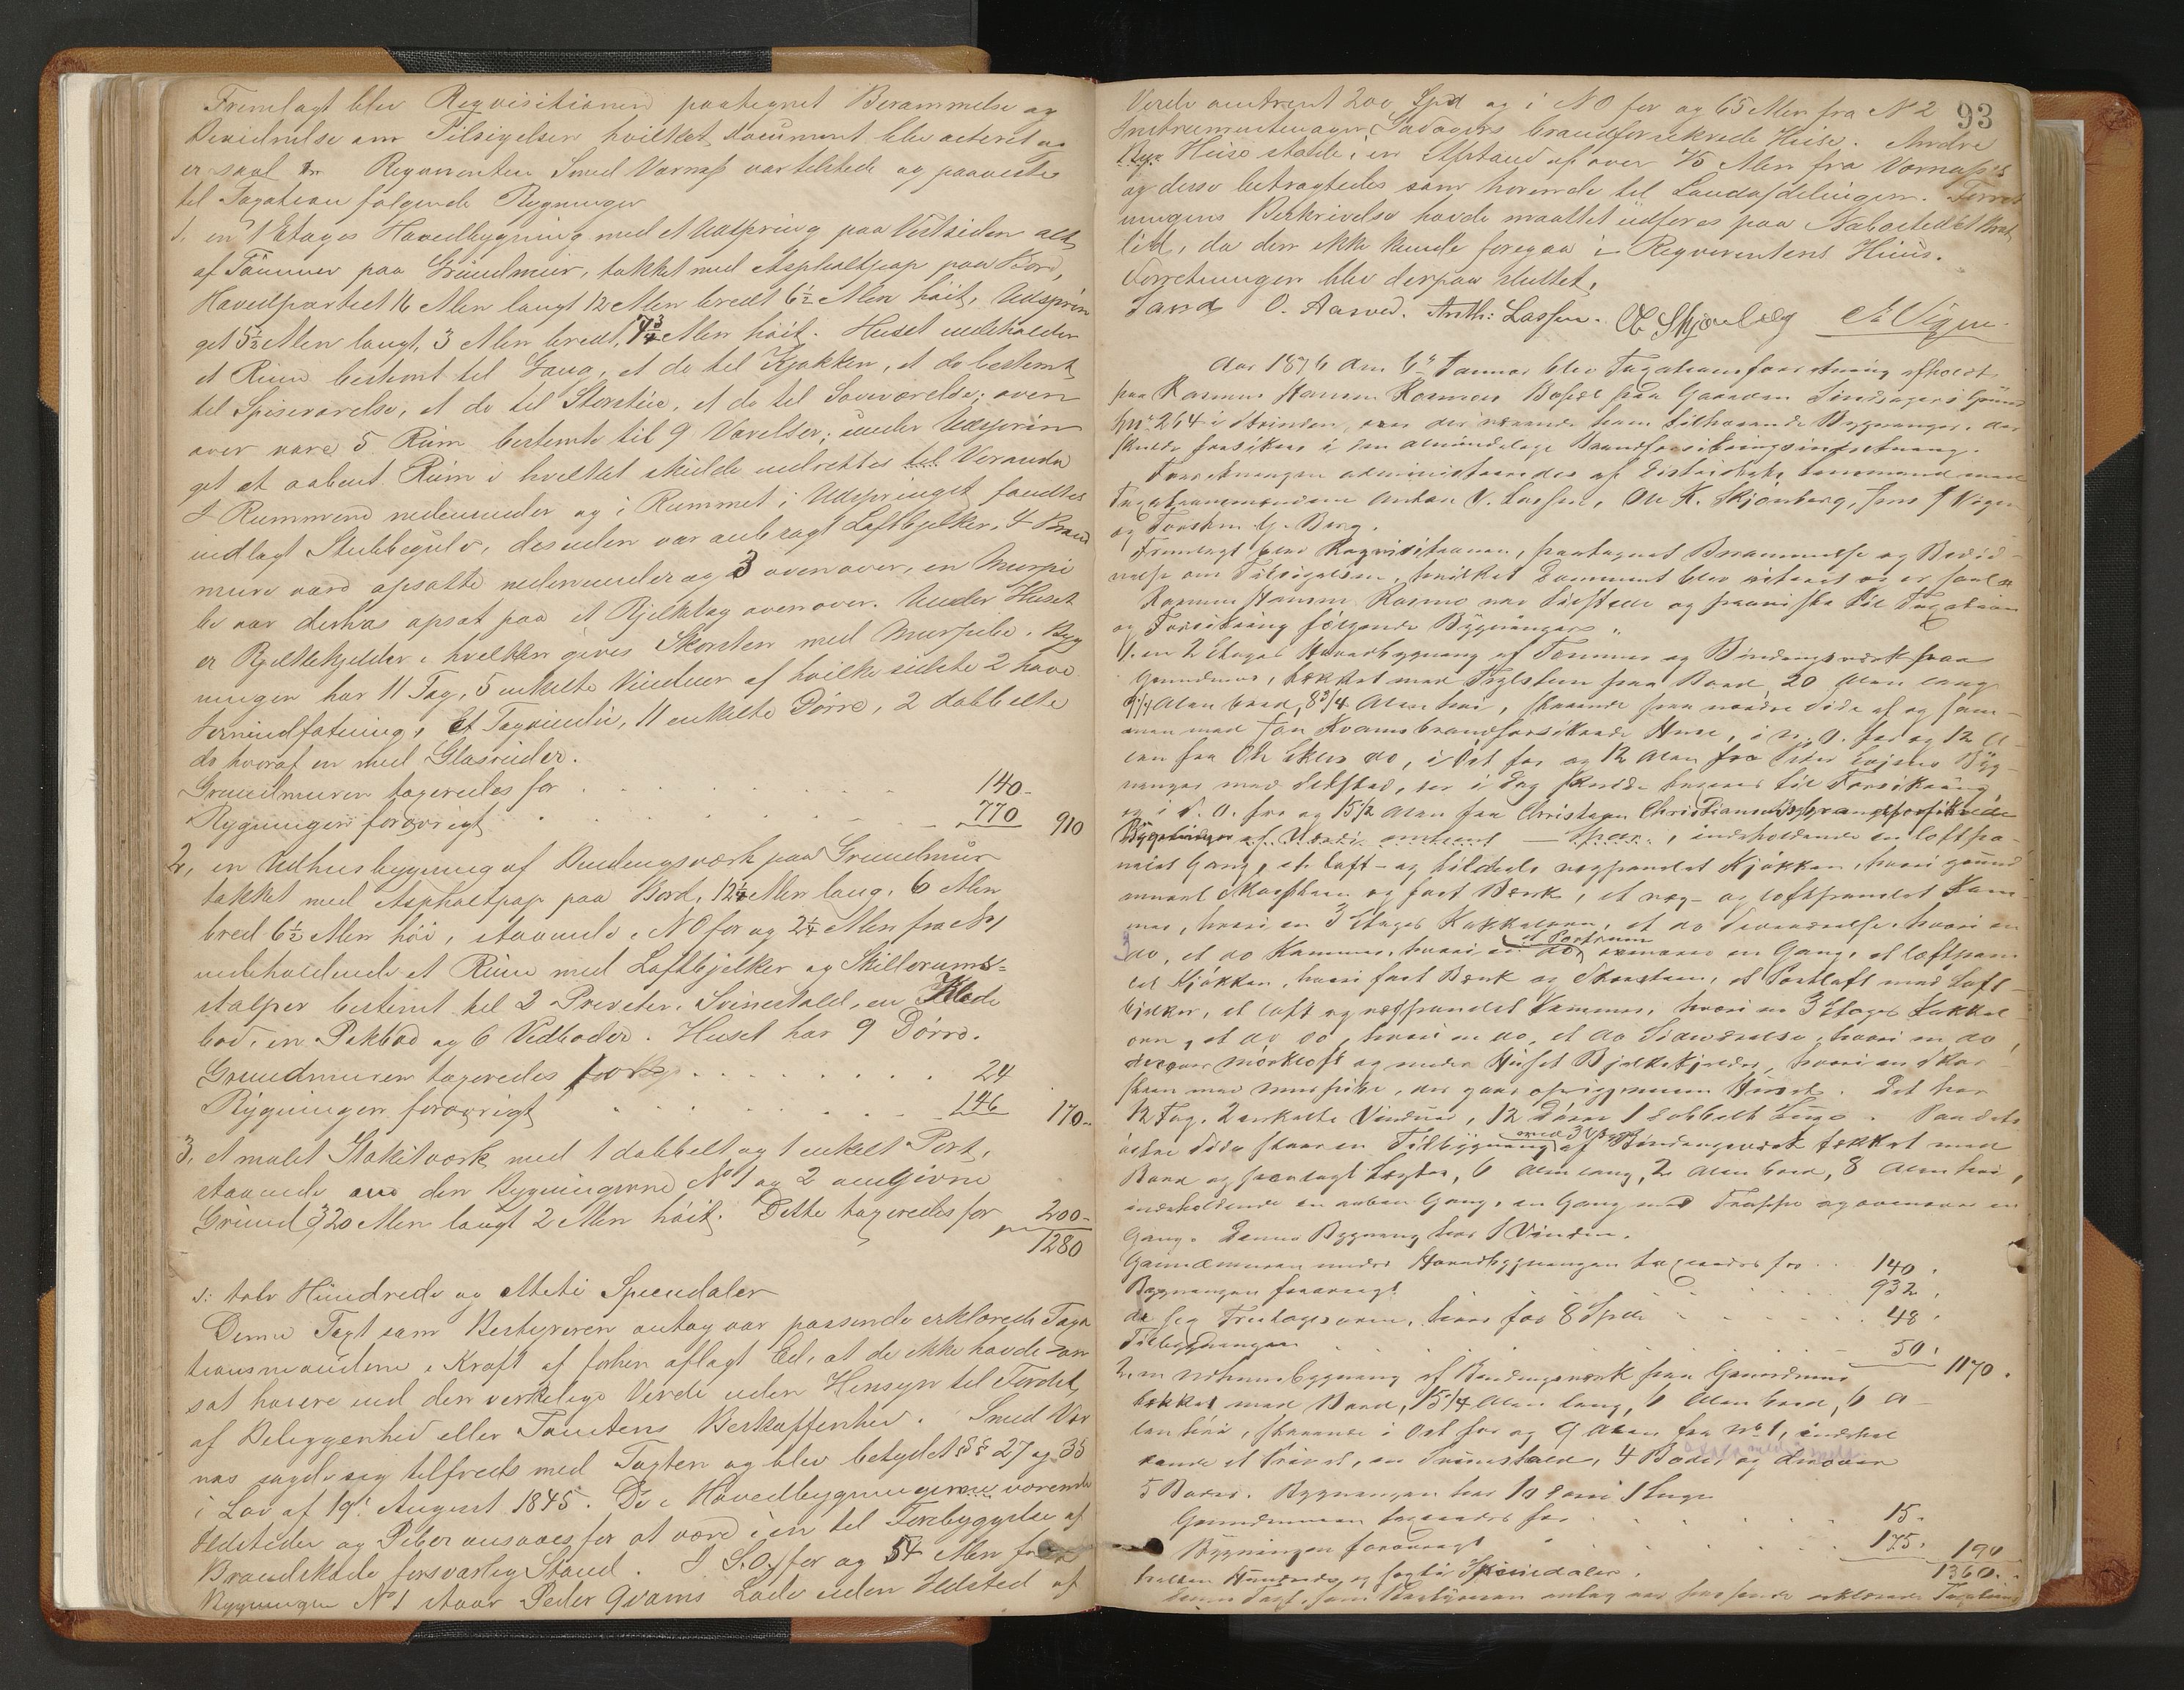 Fremlagt blev Reqvisitionen paategnet Berammelse og
Bevidnelse om Tilsigelsen hvilket Document blev acteret og
er saal Reqvirenten Smed Vornæs var tilstede og paaviste
til Taxation følgende Bygninger
1. en 1 Etages Hovedbygning med et Udspring paa Vestsiden alt
af Tømmer paa Grundmur, tækket med Asphaltpap paa Bord,
Hovedpartiet 16 Alen langt 12 Alen bredt 6½ Alen høit, Udsprin
get 5½ Alen langt, 3 Alen bredt, 7¾ Alen høit. Huset indeholder
et Rum bestemt til Gang, et do til Kjøkken, et do bestemt
til Spiseværelse, et do til Storstue, et do til Soveværelse; oven
over vare 5 Rum bestemte til 9 Værelser; under Udsprin
get et aabent Rum i hvilket skulde indrettes til Veranda
I Rummene nedenunder og i Rummet i Udspringet fandtes
indlagt Stubbegulv, desuden var anbragt Loftbjelker. 4 Brand
mure vare opsatte nedenunder og 3 ovenover, en Murpi
be var derhos opsat paa et Bjelkelag ovenover. Under Huset
er Bjelkekjelder i hvilken gives Skorsten med Murpibe. Byg
ningen har 11 Fag, 5 enkelte Vinduer af hvilke sidste 2 have
Jernindfatning, Et Tagvindu, 11 enkelte Dørre, 2 dobbelte
do hvoraf en med Glasruder.
Grundmuren taxeredes for . . . 140-
Bygningen forøvrigt . . . 770 910
2, en Udhusbygning af Bindingsværk paa Grundmur
tækket med Asphaltpap paa Bord, 12½ Alen lang, 6 Alen
bred 6½ Alen høi, staaende i NO for og 2¼ Alen fra No 1
indeholdende et Rum med Loftbjelker og Skillerums=
stolper bestemt til 2 Priveter, Svinestald, en Klæde
bod, en Pakbod og 6 Vedboder. Huset har 9 Dørre.
Grundmuren taxeredes for . . . 24
Bygningen forøvrigt . . . 146 170-
3, et malet Stakitværk med 1 dobbelt og 1 enkelt Port,
staaende om den Bygningerne No 1 og 2 omgivne
Grund, 320 Alen langt 2 Alen høit. Dette taxeredes for 200-
1280
s: tolv Hundrede og Otteti Speciedaler
Denne Taxt som Bestyreren antog var passende erklærede Taxa
tionsmændene i Kraft af forhen aflagt Ed, at de ikke havde an
sat høiere end den virkelige Værdi uden Hensyn til Fordel
af Beliggenhed eller Tomtens Beskaffenhed. Smed Vor
næs sagde sig tilfreds med Taxten og blev betydet §§ 27 og 35
i Lov af 19de August 1845. De i Hovedbygningerne værende
Ildsteder og Piber ansaaes for at være i en til Forebyggelse af
Brandskade forsvarlig Stand. I S.O. for og 54 Alen fra
Bygningen No 1 staar Peder Qvams Lade uden Ildsted af
93
Værdi omtrent 200 Spd og i NO for og 65 Alen fra No 2
Instrumentmager brandforsikrede Huse. Andre
Huse stode i en Afstand af over Alen fra Vornæs's
og disse betragtedes som hørende til Landafdelingen. Forret
ningens Beskrivelse havde maattet udføres paa Nabostedet
lid, da den ikke kunde foregaa i Reqvirentens Huus.
Forretningen blev derpaa sluttet.
O. Aarved. Anth: Lassen. O K Skjønberg J Vigen.
Aar 1876 den 6te Januar blev Taxationsforretning afholdt
paa Rasmus Hansen Rosmos Bopæl paa Gaarden i Grund
No 264 i Strinden, over der værende ham tilhørende Bygninger, der
skulde forsikres i den almindelige Brandforsikringsindretning.
Forretningen administreredes af Districtets Lensmand med
Taxationsmændene Anton V. Lassen, Ole K. Skjønberg, Jens J Vigen
og Torsten G. Berg.
Fremlagt blev Reqvisitionen, paategnet Berammelse og Bevid-
nelse om Tilsigelsen, hvilket Document blev acteret og er saal.
Rasmus Hansen Rosmo var tilstede og paaviste til Taxation
og Forsikring følgende Bygninger:
1. en 2 Etages Hovedbygning af Tømmer og Bindingsværk paa
Grundmur, tækket med Teglsten paa Bord, 20 Alen lang
9¼ Alen bred, 8¾ Alen høi, staaende paa nordre Side af og sam-
men med Jon Kvams brandforsikrede Huse, i N.O. for og 12 A-
len fra Ole do, i Øst for og 12 Alen fra Peter Byg-
ninger med Ildsted, der i Dag skulde taxeres til Forsikring,
og i S.O. for og 15½ Alen fra Christian Christiansens brandforsikrede
Bygninger af Værdi omtrent — Spdr., indeholdende en loftpa-
nelet Gang, et loft- og tildels vægpanelet Kjøkken, hvori grund
muret Skorsten og fast Bænk, et væg- og loftpanelet Kam-
mer, hvori en 3 Etages Kakkelovn, et do Soveværelse, hvori en
do, et do Kammer, hvori en do, et Portrum ovenover en Gang, et loftpane
let Kjøkken, hvori fast Bænk og Skorsten, et Portloft med Loft-
bjelker, et loft og vægpanelet Kammer, hvori en 3 Etages Kakkel
ovn, et do do, hvori en do, et do Sideværelse, hvori en do,
derover mørkloft og under Huset Bjelkekjelder, hvori en Skor
sten med Murpibe, der gaar op igjennem Huset. Det har
12 Fag, 2 enkelte Vinduer, 12 Dørre 1 dobbelt Luge. Paa dets
østre Side staar en Tilbygning af Bindingsværk tækket med
Bord og paalagt Lægter, 6 Alen lang, 2 Alen bred, 8 Alen høi,
indeholdende en aaben Gang, en Gang med Trappe og ovenover en
Gang. Denne Bygning har 1 Vindu.
Grundmuren under Hovedbygningen taxeredes for . . 140.
Bygningen forøvrigt . . . 932.
de sex Tretagesovne, hver for 8 Spd . . . 48.
Tilbygningen . . . 50. 1170.
2, en Udhuusbygning af Bindingsværk paa Grundmur
tækket med Bord, 15¼ Alen lang, 6 Alen bred, 6 A-
len høi, staaende i Øst for og 9 Alen fra No 1, indehol
dende et Privet, en Svinestald, 4 Boder og derover
5 Boder. Bygningen har 10 Dørre 1 Luge
Grundmuren taxeredes for . . . 15.
Bygningen forøvrigt . . . 175. 190
1360.
tretten Hundrede og sexti Speciedaler.
Denne Taxt, som Bestyreren antog var passende erklærede Taxations